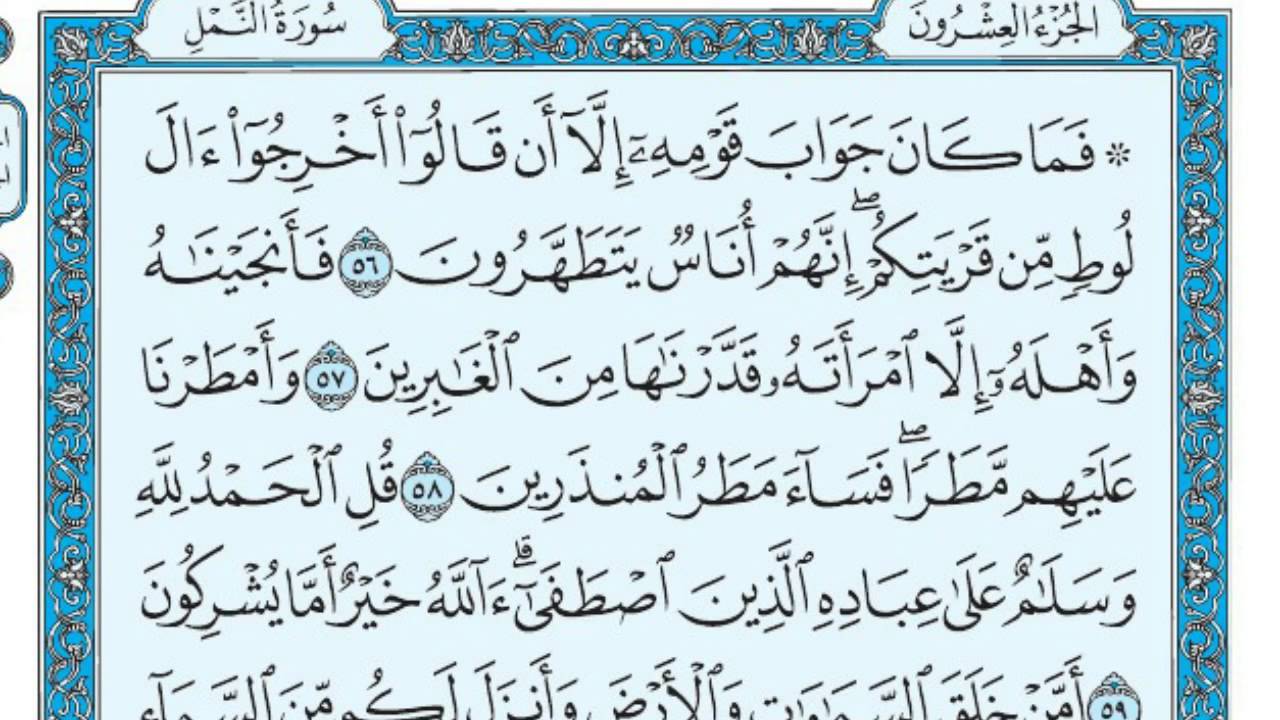 الجُزْءُ العِشْرُونَ
سُورَةُ النَّمْلِ
* فَمَا كَانَ جَوَابَ قَوْمِهِۦٓ إِلَّآ أَن قَالُوٓا۟ أَخْرِجُوٓا۟ ءَالَ
لُوطٍ مِّن قَرْيَتِكُمْۖ إِنَّهُمْ أُنَاسٌ يَتَطَهَّرُونَ ٥٦ فَأَنجَيْنَٰهُ
وَأَهْلَهُۥٓ إِلَّا ٱمْرَأَتَهُۥ قَدَّرْنَٰهَا مِنَ ٱلْغَٰبِرِينَ ٥٧ وَأَمْطَرْنَا
عَلَيْهِم مَّطَرًاۖ فَسَآءَ مَطَرُ ٱلْمُنذَرِينَ ٥٨ قُلِ ٱلْحَمْدُ لِلَّهِ
وَسَلَٰمٌ عَلَىٰ عِبَادِهِ ٱلَّذِينَ ٱصْطَفَىٰٓۗ ءَآللَّهُ خَيْرٌ أَمَّا يُشْرِكُونَ
٥٩ أَمَّنْ خَلَقَ ٱلسَّمَٰوَٰتِ وَٱلْأَرْضَ وَأَنزَلَ لَكُم مِّنَ ٱلسَّمَآءِ